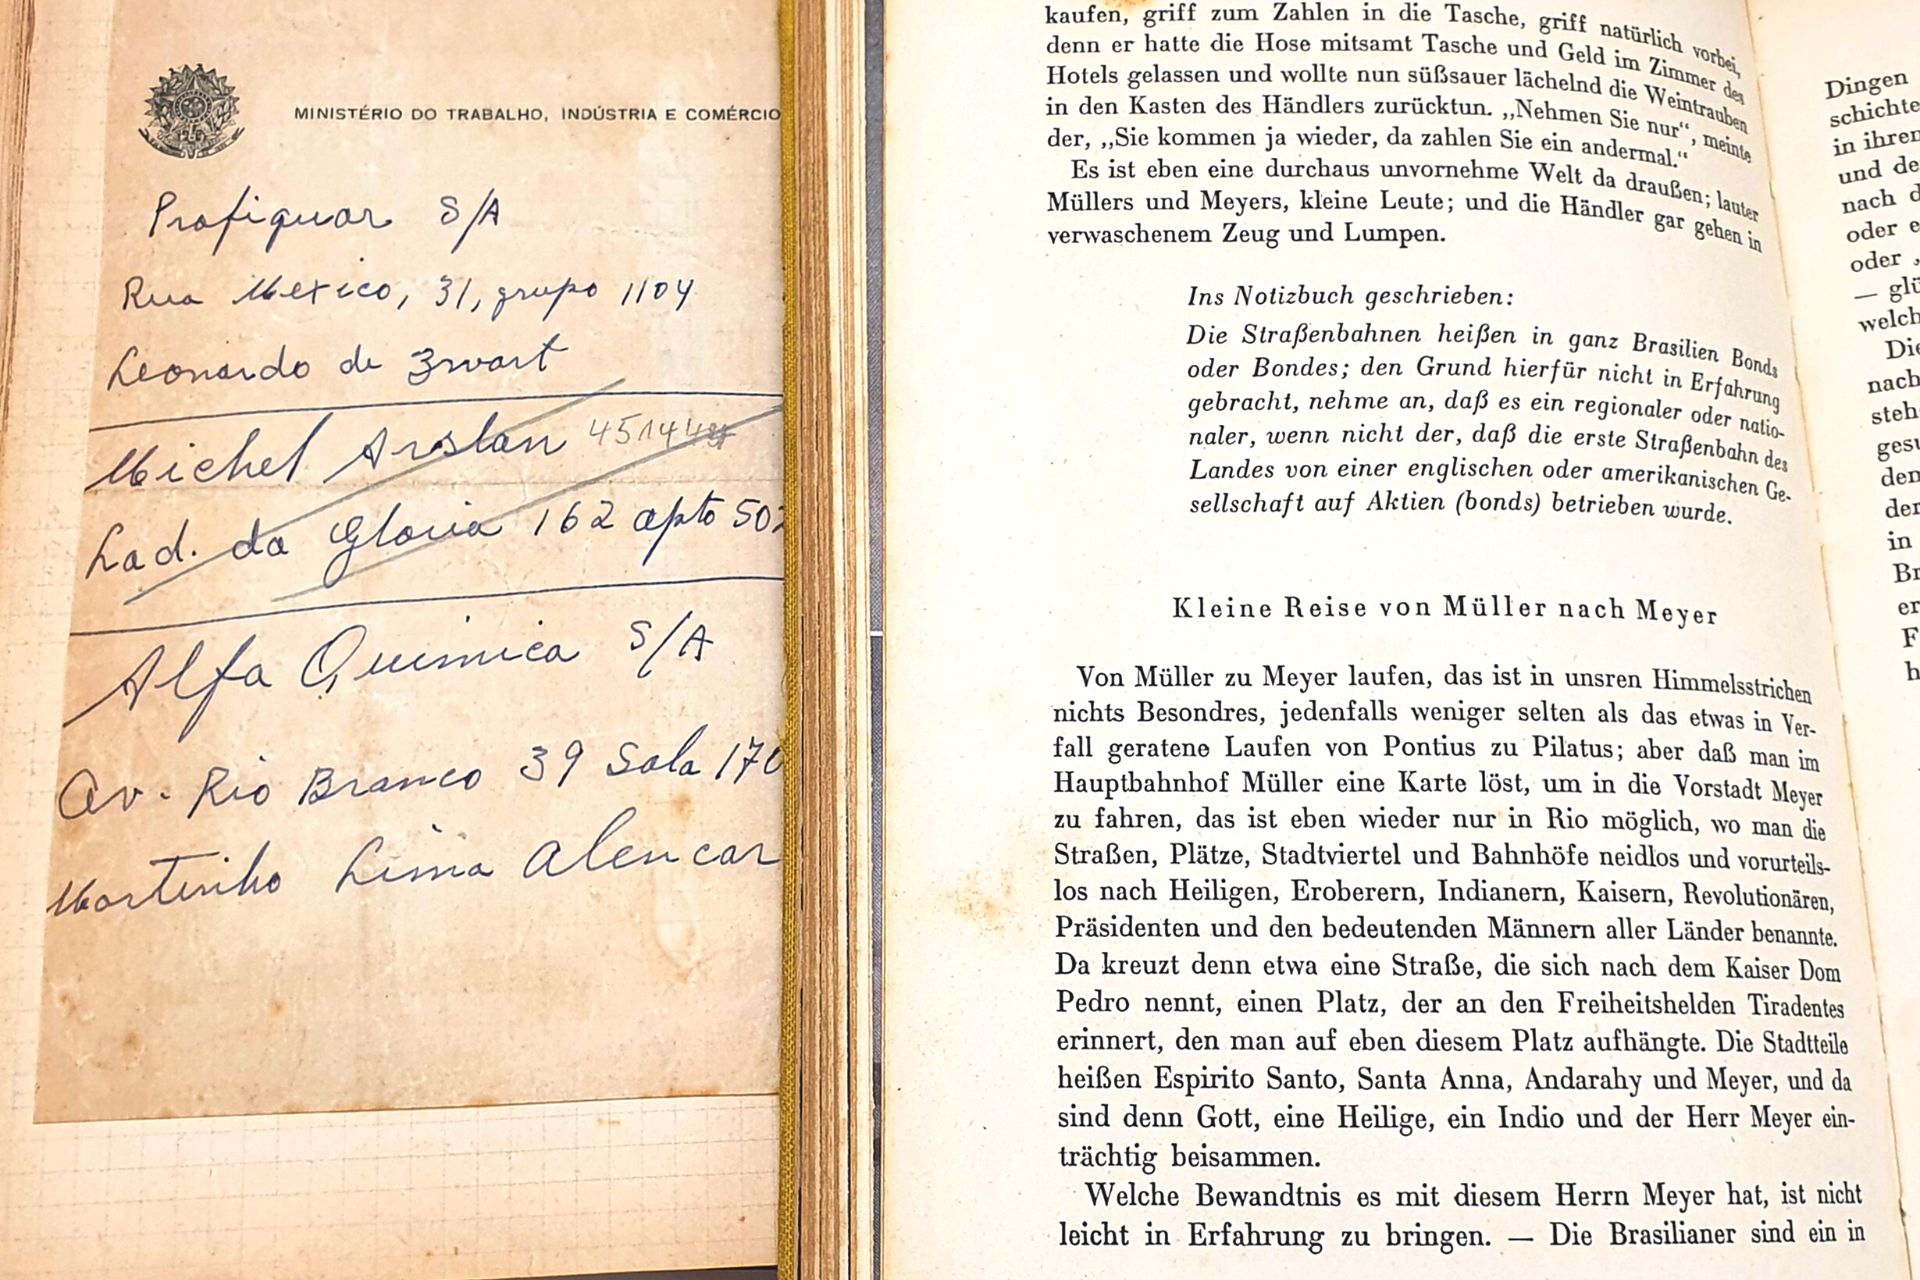 MINISTÉRIO DO TRABALHO, INDÚSTRIA E COMÉRCIO
Profiquar S/A
Rua Mexico, 31, grupo 1104
Leonardo de Zwart
Michel Arslan 45144
Lad. da Gloria 162 apto 502
Alfa Quimica S/A
Av. Rio Branco 39 Sala 170
Martinho Lima Alencar
kaufen, griff zum Zahlen in die Tasche, griff natürlich vorbei,
denn er hatte die Hose mitsamt Tasche und Geld im Zimmer des
Hotels gelassen und wollte nun süßsauer lächelnd die Weintrauben
in den Kasten des Händlers zurücktun. „Nehmen Sie nur“, meinte
der, „Sie kommen ja wieder, da zahlen Sie ein andermal.“
Es ist eben eine durchaus unvornehme Welt da draußen; lauter
Müllers und Meyers, kleine Leute; und die Händler gar gehen in
verwaschenem Zeug und Lumpen.
Ins Notizbuch geschrieben:
Die Straßenbahnen heißen in ganz Brasilien Bonds
oder Bondes; den Grund hierfür nicht in Erfahrung
gebracht, nehme an, daß es ein regionaler oder natio-
naler, wenn nicht der, daß die erste Straßenbahn des
Landes von einer englischen oder amerikanischen Ge-
sellschaft auf Aktien (bonds) betrieben wurde.
Kleine Reise von Müller nach Meyer
Von Müller zu Meyer laufen, das ist in unsren Himmelsstrichen
nichts Besondres, jedenfalls weniger selten als das etwas in Ver-
fall geratene Laufen von Pontius zu Pilatus; aber daß man im
Hauptbahnhof Müller eine Karte löst, um in die Vorstadt Meyer
zu fahren, das ist eben wieder nur in Rio möglich, wo man die
Straßen, Plätze, Stadtviertel und Bahnhöfe neidlos und vorurteils-
los nach Heiligen, Eroberern, Indianern, Kaisern, Revolutionären,
Präsidenten und den bedeutenden Männern aller Länder benannte.
Da kreuzt denn etwa eine Straße, die sich nach dem Kaiser Dom
Pedro nennt, einen Platz, der an den Freiheitshelden Tiradentes
erinnert, den man auf eben diesem Platz aufhängte. Die Stadtteile
heißen Espirito Santo, Santa Anna, Andarahy und Meyer, und da
sind denn Gott, eine Heilige, ein Indio und der Herr Meyer ein-
trächtig beisammen.
Welche Bewandtnis es mit diesem Herrn Meyer hat, ist nicht
leicht in Erfahrung zu bringen. — Die Brasilianer sind ein in
Dingen
schichte
in ihren
und de
nach d
oder e
oder
— glü
welch
Die
nach
steh
gesu
den
der
in
Br
er
F
h